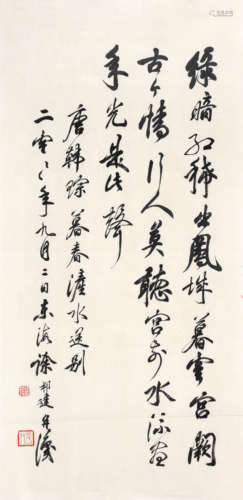 綠暗紅稀出鳳城暮雲宮闕
古今情行人莫聽宮前水流盡
年光是此聲
唐韓琮暮春滻水送别
年九月二日东海徐